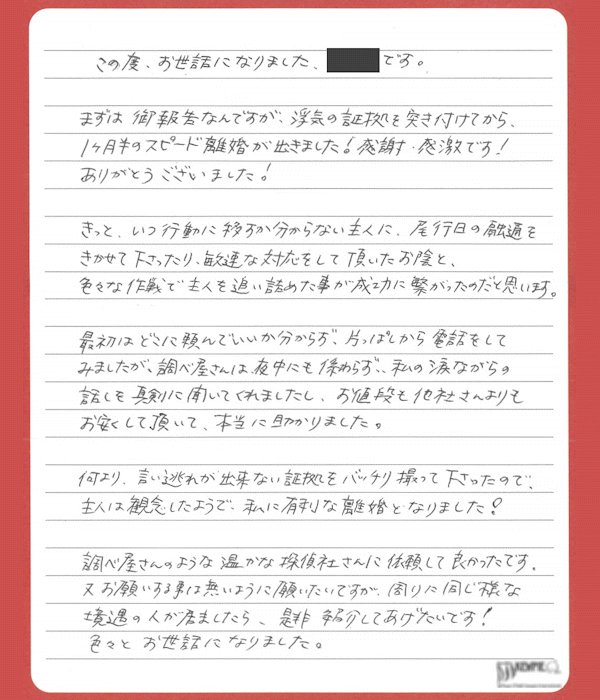 この度、お世話になりました、
です。
まずは御報告なんですが、浮気の証拠を突き付けてから、
1ヶ月半のスピード離婚が出きました！感謝・感激です！
ありがとうございました！
きっと、いつ行動に移すか分からない主人に、尾行日の融通を
きかせて下さったり、敏速な対応をして頂いたお陰と、
色々な作戦で主人を追い詰めた事が成功に繋がったのだと思います。
最初はどこに頼んでいいか分からず、片っぱしから電話をして
みましたが、調べ屋さんは、夜中にも係わらず、私の涙ながらの
話しを真剣に聞いてくれましたし、お値段も他社さんよりも
お安くして頂いて、本当に助かりました。
何より、言い逃れが出来ない証拠をバッチリ撮って下さったので、
主人は観念したようで、私に有利な離婚となりました！
調べ屋さんのような温かな探偵社さんに依頼して良かったです。
又お願いする事は無いように願いたいですが、周りに同じ様な
境遇の人が居ましたら、是非紹介してあげたいです！
色々とお世話になりました。